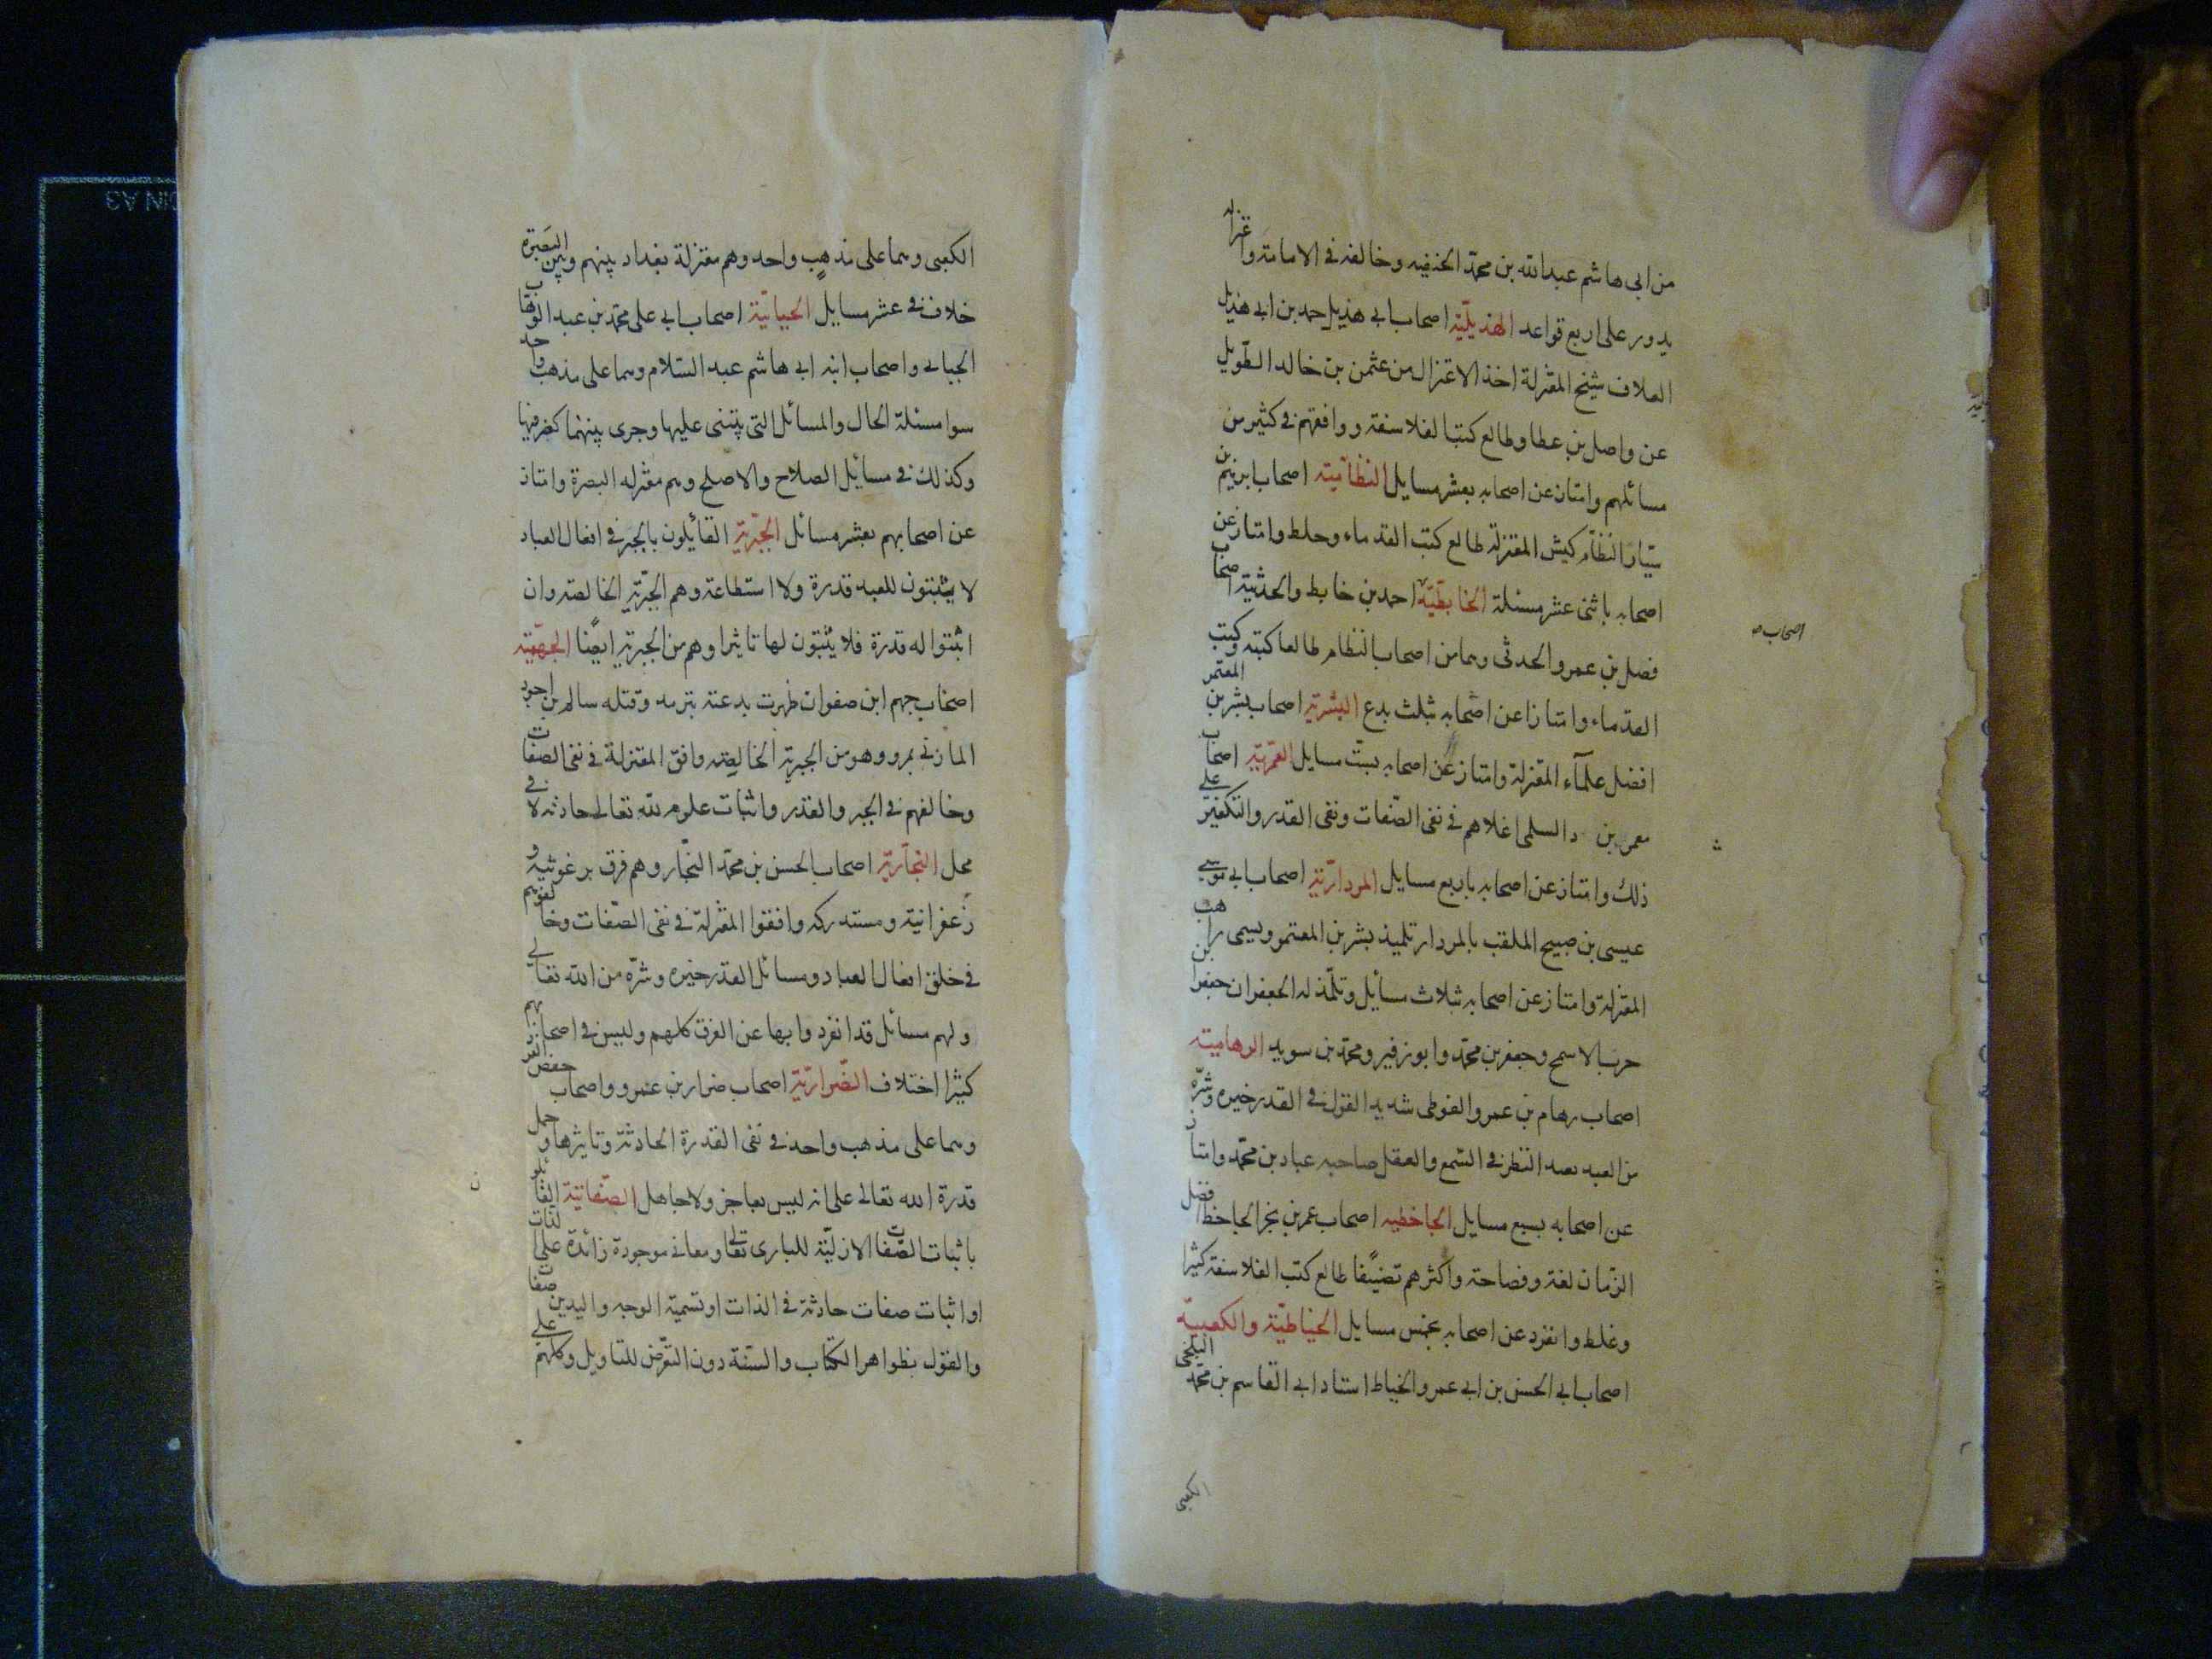 من ابى هاشم عبدالله بن محمد الحنفيه وخالفه فى الامامة واعتزاله
يدور على اربع قواعد الهذيلية اصحاب ابى هذيل حمد بن ابى هذيل
العلاف شيخ المعتزلة اخذ الاعتزال من عثمن بن خالد الطويل
عن واصل بن عطا وطالع كتب الفلاسفة ووافقهم فى كثير من
مسائلهم وامتاز عن اصحابه بعشر مسايل النظامية اصحاب ابرهيم بن
سيار النظام كبش المعتزلة طالع كتب القدماء وخلط وامتاز عن
اصحابه باثنى عشر مسئلة الخابطية احمد بن خابط والحدثية اصحاب
اصحاب
فضل بن عمرو الحدثى وهما من اصحاب النظام طالعا كتبه وكتب
القدماء وامتازا عن اصحابه بثلث بدع البشرية اصحاب بشر بن المعتمر
افضل علماء المعتزلة وامتاز عن اصحابه بست مسايل المعمرية اصحاب
معمر بن د السلمى اغلاهم فى نفى الصفات ونفى القدر والتكفير على
ذلك وامتاز عن اصحابه باربع مسايل المردارية اصحاب ابى موسى
عيسى بن صبيح الملقب بالمردار تلميذ بشر بن المعتمر ويسمى راهب
المعتزلة وامتاز عن اصحابه بثلاث مسائل وتلمذ له الجعفران جعفر بن
حرب الاسمح وجعفر بن محمد وابو زفير ومحمد بن سويد الرهامية
اصحاب رهام بن عمرو الفوطى شديد القول فى القدر خيره وشره
من العبد بعد النظر فى السمع والعقل صاحبه عباد بن محمد وامتاز
عن اصحابه بسبع مسايل الجاحظيه اصحاب عمر بن بحر الجاحظ افضل
الزمان لغة وفصاحة واكثرهم تصنيفا طالع كتب الفلاسفة كثيرا
وغلط وانفرد عن اصحابه بخمس مسايل الخياطية والكعبية
اصحاب ابى الحسن بن ابى عمرو الخياط استاد ابى القاسم بن محمد البلخى
الكعبى
الكعبى وهما على مذهب واحد وهم معتزلة بغداد بينهم وبين البصرة
خلاف فى عشر مسايل الجبائية اصحاب ابى على محمد بن عبد الوهاب
الجبايى واصحاب ابنه ابى هاشم عبد السلام وهما على مذهب واحد
سوا مسئلة الحال والمسائل التى يبتنى عليها وجرى بينهما كفر فيها
وكذلك فى مسائل الصلاح والاصلح وهم معتزله البصرة وامتاز
عن اصحابهم بعشر مسائل الجبرية القائلون بالجبر فى افعال العباد
لا يثبتون للعبد قدرة ولا استطاعة وهم الجبرية الخالصة وان
اثبتوا له قدرة فلا يثبتون لها تاثيرا وهم من الجبرية ايضا الجهمية
اصحاب جهم ابن صفوان ظهرت بدعته بترمد وقتله سالم بن احوذ
المازنى بمرو وهو من الجبرية الخالصة وافق المعتزلة فى نفى الصفات
وخالفهم فى الجبر والقدر واثبات علوم لله تعالى حادثه لا فى
محل النجارية اصحاب الحسن بن محمد النجار وهم فرق برغوثية و
زعفرانية ومستدركه وافقوا المعتزلة فى نفى الصفات وخالفوهم
فى خلق افعال العباد ومسائل القدر خيره وشره من الله تعالى
ولهم مسائل قد انفردوا بها عن الفرق كلهم وليس فى اصحابهم
كثيرا اختلاف الضرارية اصحاب ضرار بن عمرو واصحاب حفص الفرد
وهما على مذهب واحد فى نفى القدرة الحادثة وتاثيرها وحمل
قدرة الله تعالى على انه ليس بعاجز ولا جاهل الصفاتية القائلون
باثبات الصفات الازلية للبارى تعالى ومعانى موجودة زائدة على الذات
او اثبات صفات حادثة فى الذات او تسمية الوجه واليدين صفات
والقول بظواهر الكتاب والسنة دون التعرض للتاويل وكلهم على